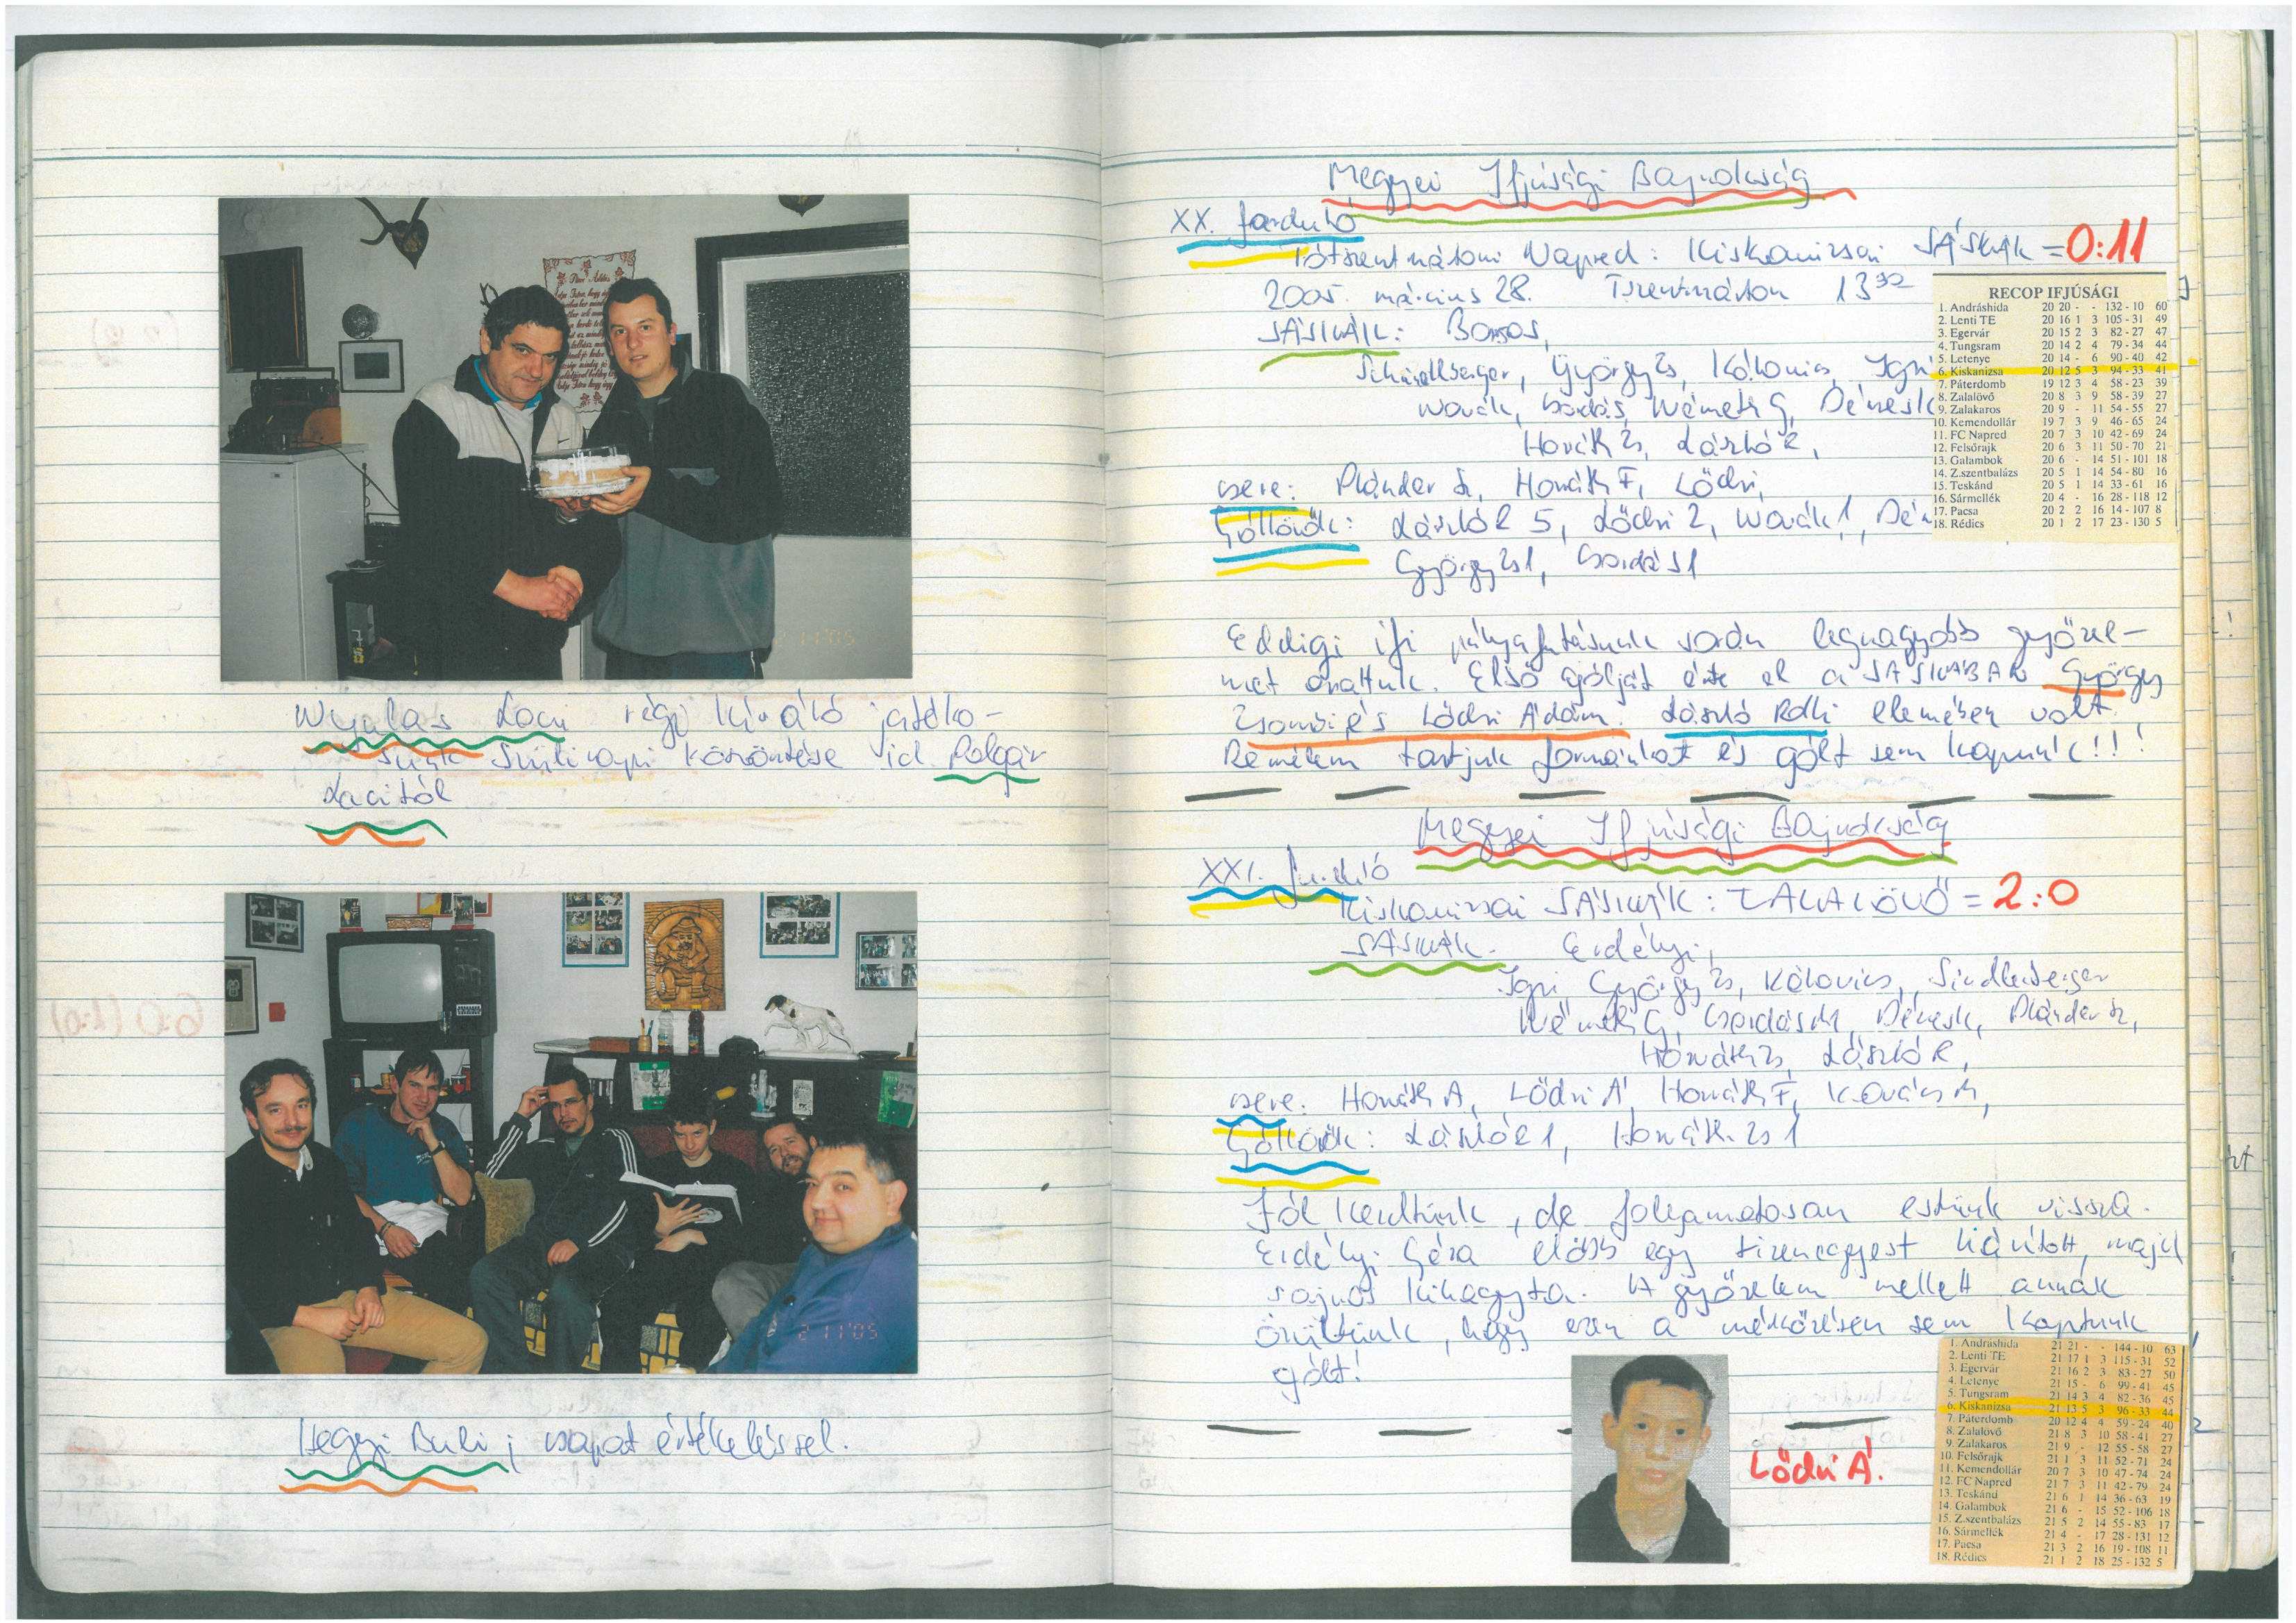 Nyulas Laci régi kiváló játéko-
sunk születésnapi köszöntése id. Polgár
Lacitól
2 11'05
Hegyi Buli; csapat értékeléssel.
Megyei Ifjúsági Bajnokság
XX. forduló
Tótszentmártoni Napred: Kiskanizsai SÁSKÁK = 0:11
2005. március 28. Tszentmárton 13 30
SÁSKÁK: Boros,
György Zs, Kálovics, Igri
Novák, Csordás, Németh G, Dénes K
Horváth Zs, László R,
csere: Plánder Sz, Horváth F, Lődri,
Góllövők: László R 5, Lődri 2, Novák 1, Dén
György Zs 1, Csordás 1
RECOP IFJÚSÁGI
1. Andráshida 20 20 - - 132 - 10 60
2. Lenti TE 20 16 1 3 105 - 31 49
3. Egervár 20 15 2 3 82 - 27 47
4. Tungsram 20 14 2 4 79 - 34 44
5. Letenye 20 14 - 6 90 - 40 42
6. Kiskanizsa 20 12 5 3 94 - 33 41
7. Páterdomb 19 12 3 4 58 - 23 39
8. Zalalövő 20 8 3 9 58 - 39 27
9. Zalakaros 20 9 - 11 54 - 55 27
10. Kemendollár 19 7 3 9 46 - 65 24
11. FC Napred 20 7 3 10 42 - 69 24
12. Felsőrajk 20 6 3 11 50 - 70 21
13. Galambok 20 6 - 14 51 - 101 18
14. Z.szentbalázs 20 5 1 14 54 - 80 16
15. Teskánd 20 5 1 14 33 - 61 16
16. Sármellék 20 4 - 16 28 - 118 12
17. Pacsa 20 2 2 16 14 - 107 8
18. Rédics 20 1 2 17 23 - 130 5
Eddigi ifi pályafutásunk során legnagyobb győzel-
met arattuk. Első gólját érte el a SÁSKÁBAN György
Zsombi és Lődri Ádám. László Roli elemében volt.
Remélem tartjuk formánkat és gólt sem kapunk!!!
Megyei Ifjúsági Bajnokság
XXI. forduló
Kiskanizsai SÁSKÁK: ZALALÖVŐ = 2:0
SÁSKÁK: Erdélyi,
Igri, György Zs, Kálovics, Sindlerberger
Németh G, Csordás M, Dénes K, Plánder Sz,
Horváth Zs, László R,
csere: Horváth A, Lődri Á, Horváth F, Kovács M,
Góllövők: László R 1, Horváth Zs 1
Jól kezdtünk, de folyamatosan estünk vissza.
Erdélyi Géza előbb egy tizenegyest hárított, majd
sajnos kihagyta. A győzelem mellett annak
örültünk, hogy ezen a mérkőzésen sem kaptunk
gólt!
Lődri Á.
1. Andráshida 21 21 - - 144 - 10 63
2. Lenti TE 21 17 1 3 115 - 31 52
3. Egervár 21 16 2 3 83 - 27 50
4. Letenye 21 15 - 6 99 - 41 45
5. Tungsram 21 14 3 4 82 - 36 45
6. Kiskanizsa 21 13 5 3 96 - 33 44
7. Páterdomb 20 12 4 4 59 - 24 40
8. Zalalövő 21 8 3 10 58 - 41 27
9. Zalakaros 21 9 - 12 55 - 58 27
10. Felsőrajk 21 1 3 11 52 - 71 24
11. Kemendollár 20 7 3 10 47 - 74 24
12. FC Napred 21 7 3 11 42 - 79 24
13. Teskánd 21 6 1 14 36 - 63 19
14. Galambok 21 6 - 15 52 - 106 18
15. Z.szentbalázs 21 5 2 14 55 - 83 17
16. Sármellék 21 4 - 17 28 - 131 12
17. Pacsa 21 3 2 16 19 - 108 11
18. Rédics 21 1 2 18 25 - 132 5